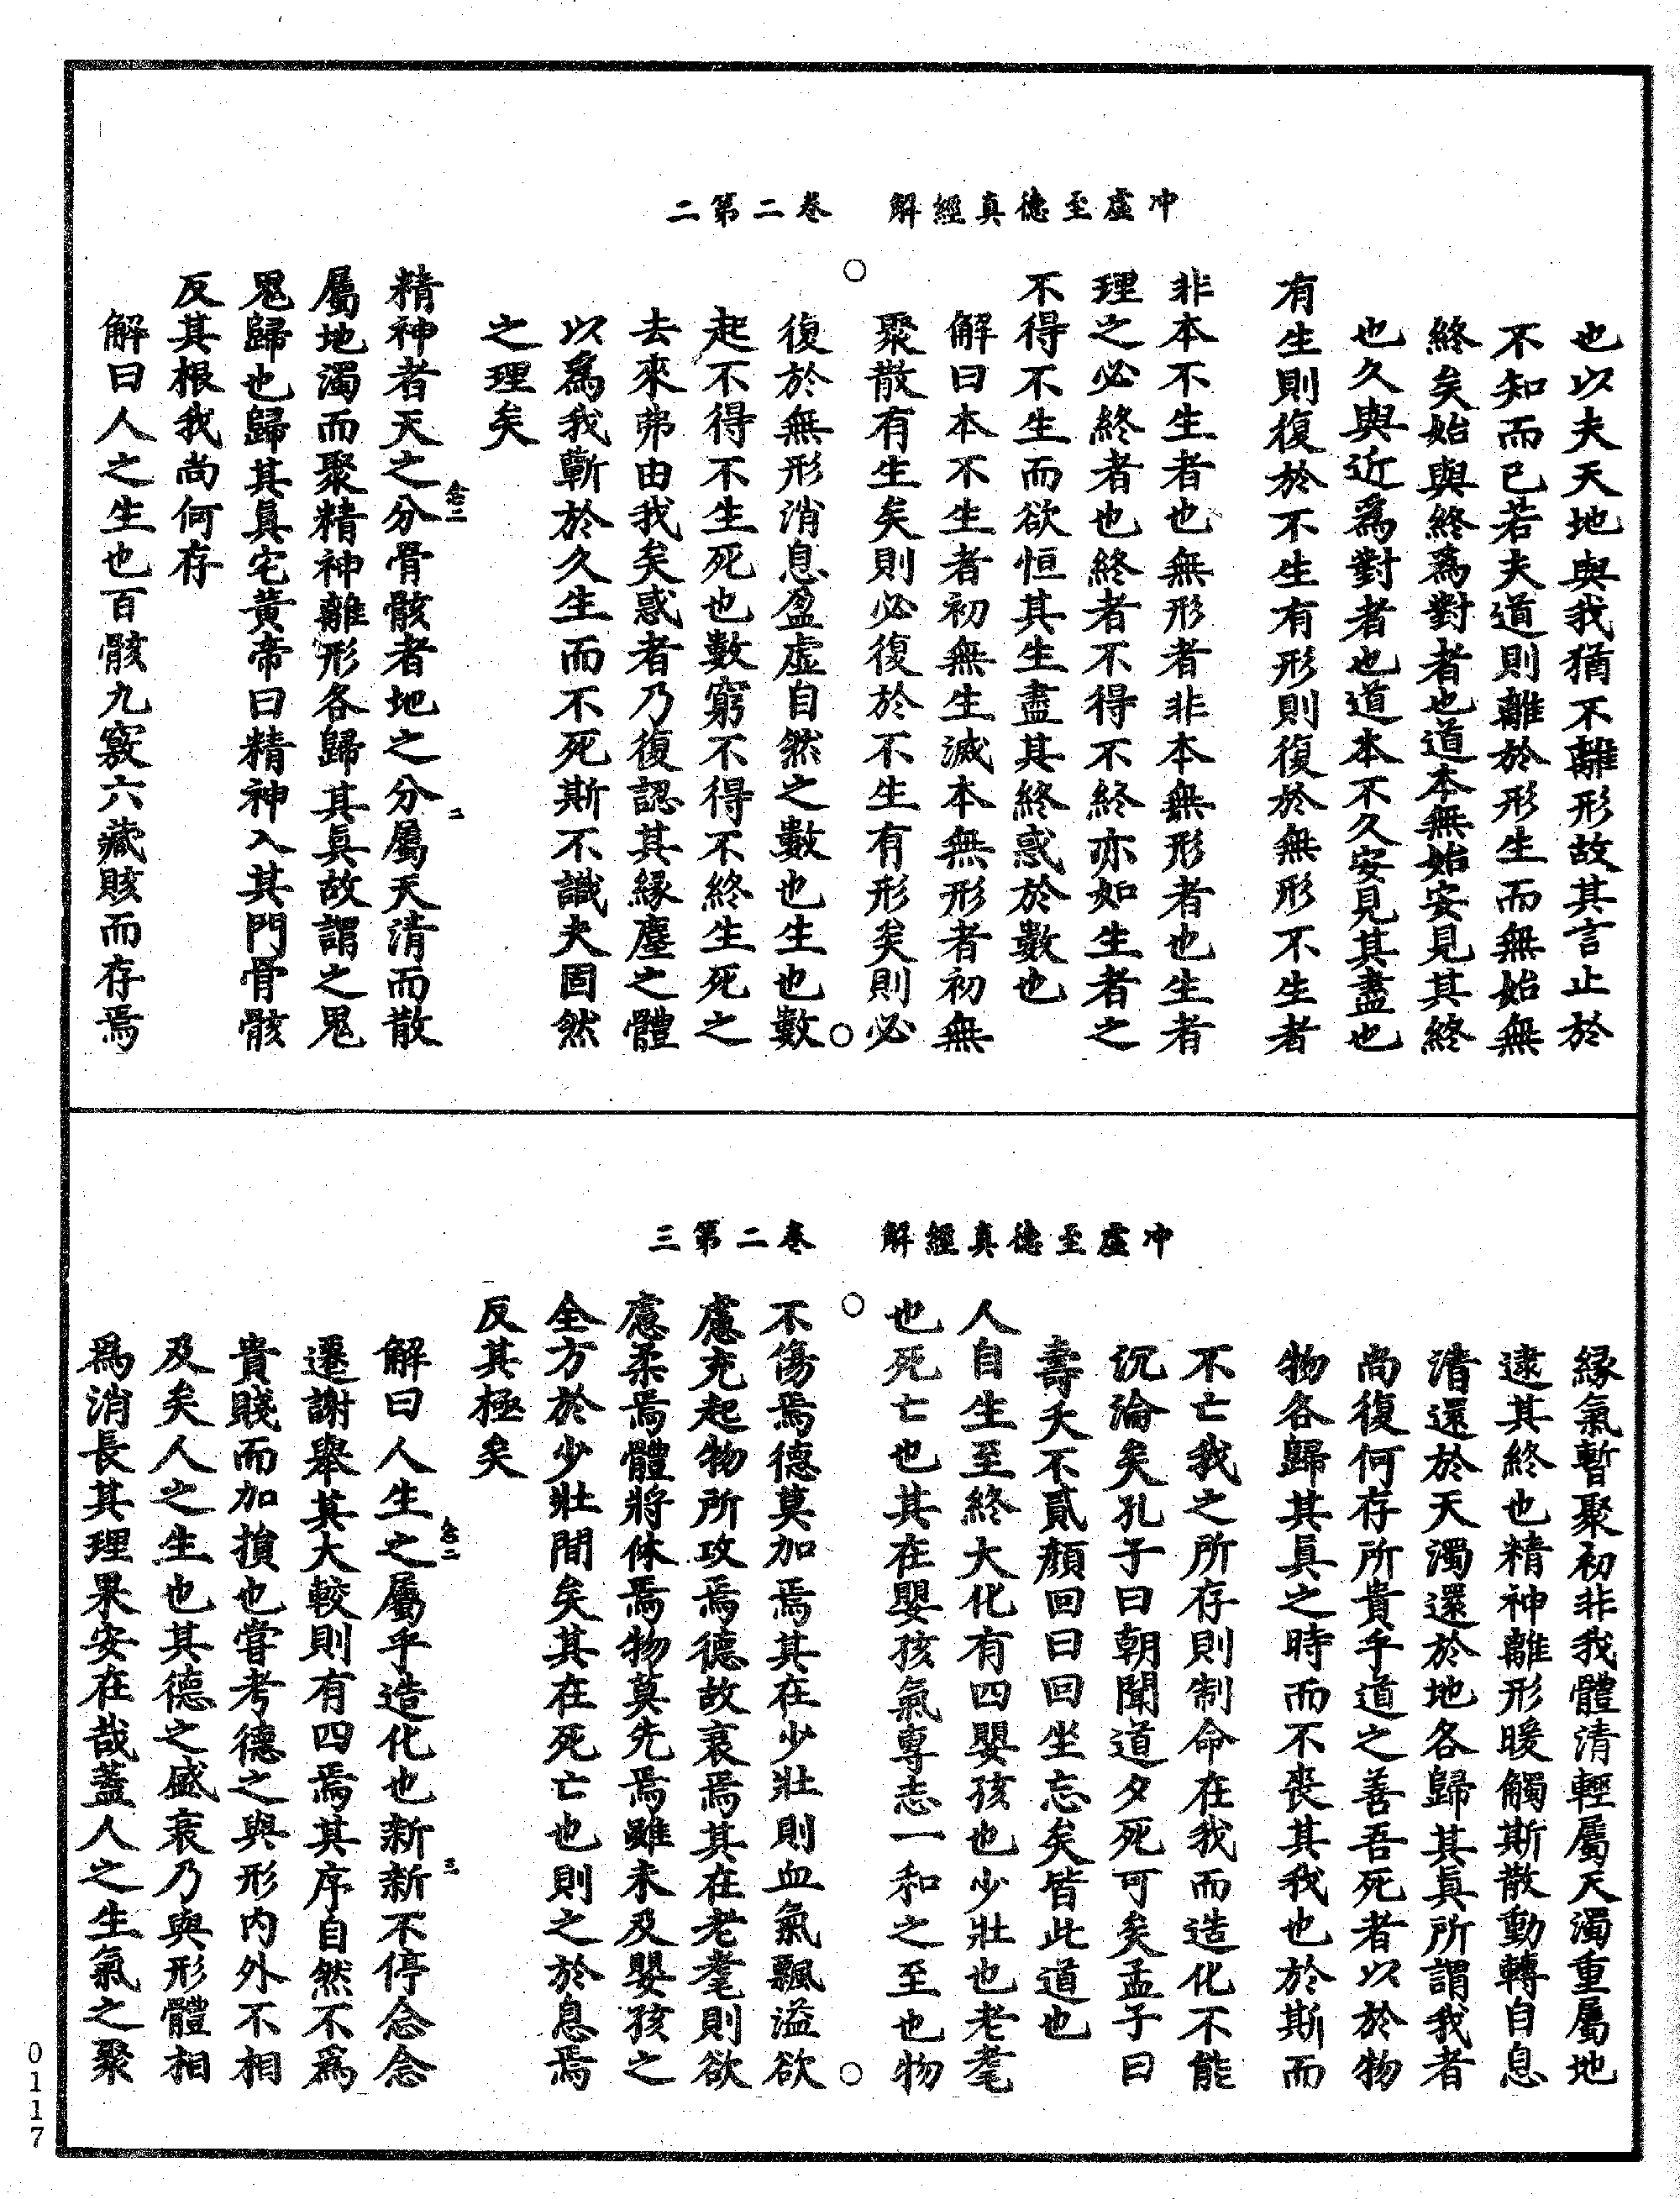 冲虛至德真經解　卷二第二
也以夫天地與我猶不離形故其言止於
不知而已若夫道則離於形生而無始無
終矣始與終爲對者也道本無始安見其終
也久與近爲對者也道本不久安見其盡也
有生則復於不生有形則復於無形不生者
非本不生者也無形者非本無形者也生者
理之必終者也終者不得不終亦如生者之
不得不生而欲恒其生盡其終惑於數也
解曰本不生者初無生滅本無形者初無
聚散有生矣則必復於不生有形矣則必
○
○
復於無形消息盈虛自然之數也生也數
起不得不生死也數窮不得不終生死之
去來弗由我矣惑者乃復認其緣塵之體
以爲我蘄於久生而不死斯不識夫固然
之理矣
念二
二
精神者天之分骨骸者地之分屬天清而散
屬地濁而聚精神離形各歸其眞故謂之鬼
鬼歸也歸其眞宅黃帝曰精神入其門骨骸
反其根我尚何存
解曰人之生也百骸九竅六藏賅而存焉
冲虛至德真經解　卷二第三
緣氣暫聚初非我體清輕屬天濁重屬地
逮其終也精神離形暖觸斯散動轉自息
清還於天濁還於地各歸其眞所謂我者
尚復何存所貴乎道之善吾死者以於物
物各歸其眞之時而不喪其我也於斯而
不亡我之所存則制命在我而造化不能
沉淪矣孔子曰朝聞道夕死可矣孟子曰
壽夭不貳顏回曰回坐忘矣皆此道也
人自生至終大化有四嬰孩也少壯也老耄
也死亡也其在嬰孩氣專志一和之至也物
○
○
不傷焉德莫加焉其在少壯則血氣飄溢欲
慮充起物所攻焉德故衰焉其在老耄則欲
慮柔焉體將休焉物莫先焉雖未及嬰孩之
全方於少壯間矣其在死亡也則之於息焉
反其極矣
念二
三
解曰人生之屬乎造化也新新不停念念
遷謝舉其大較則有四焉其序自然不爲
貴賤而加損也嘗考德之與形內外不相
及矣人之生也其德之盛衰乃與形體相
爲消長其理果安在哉蓋人之生氣之聚
0117